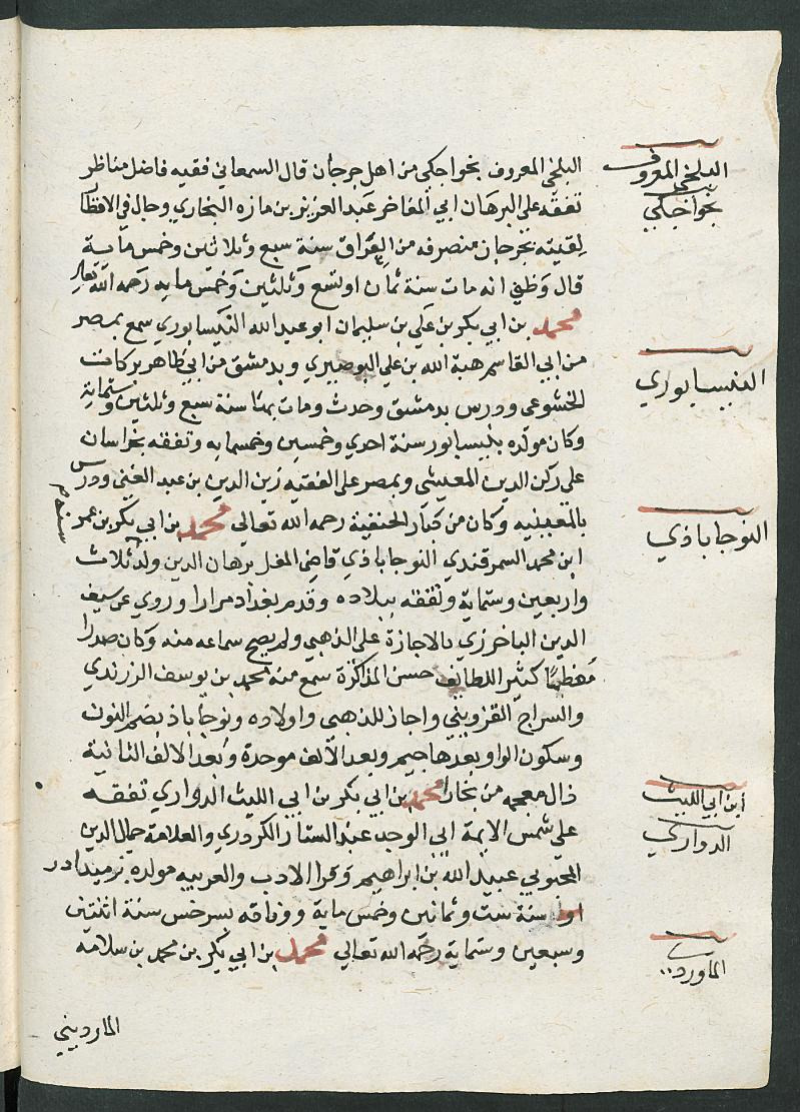 البلخي المعروف بخواجكي من اهل جرجان قال السمعاني فقيه فاضل مناظر
تفقه على البرهان ابي المفاخر عبد العزيز بن مازه البخاري وجال في الاقطار
لقيته بجرجان منصرفه من العراق سنة سبع وثلاثين وخمس ماية
قال وظني انه مات سنة ثمان او تسع وثلثين وخمس مايه رحمه الله تعالى
محمد بن ابي بكر بن علي بن سليمان ابو عبد الله النيسابوري سمع بمصر
من ابي القاسم هبة الله بن علي البوصيري وبدمشق من ابي طاهر بركات
الخشوعي ودرس بدمشق وحدث ومات بمنا سنة سبع وثلثين وستماية
وكان مولده بنيسابور سنة احدي وخمسين وخمسمايه وتفقه بخراسان
على ركن الدين المعيشي وبمصر على الفقيه زين الدين بن عبد الغني ودرس
بالمعينيه وكان من كبار الحنفية رحمه الله تعالي محمد بن ابي بكر بن عمر
ابن محمد السمرقندي النوجاباذي قاضي المغل برهان الدين ولد ثلاث
سنة
واربعين وستماية وتفقه ببلاده وقدم بغداد مرارا وروي عن سيف
الدين الباخرزي بالاجازة على الذهبي ولم يصح سماعه منه وكان صدرا
معظما كثير اللطايف حسن المذاكرة سمع منه محمد بن يوسف الزرندي
والسراج القزويني واجاز للذهبي واولاده ونوجاباذ بضم النون
وسكون الواو بعدها جيم وبعد الالف موحدة وبعد الالف الثانية
ذال معجمه من بخارا محمد بن ابي بكر بن ابي الليث الدواري تفقه
على شمس الايمة ابي الوجد عبد الستار الكردري والعلامة جمال الدين
المحبوبي عبيد الله بن ابراهيم وقرا الادب والعربيه مولده
سنة ست وثمانين وخمس ماية ووفاته بسرخس سنة اثنتين
وسبعين وستماية رحمه الله تعالي محمد بن ابي بكر بن محمد بن سلامه
المارديني
البلخي المعروف
بخواجكي
النيسابوري
النوجاباذي
ابن ابي الليث
الدواري